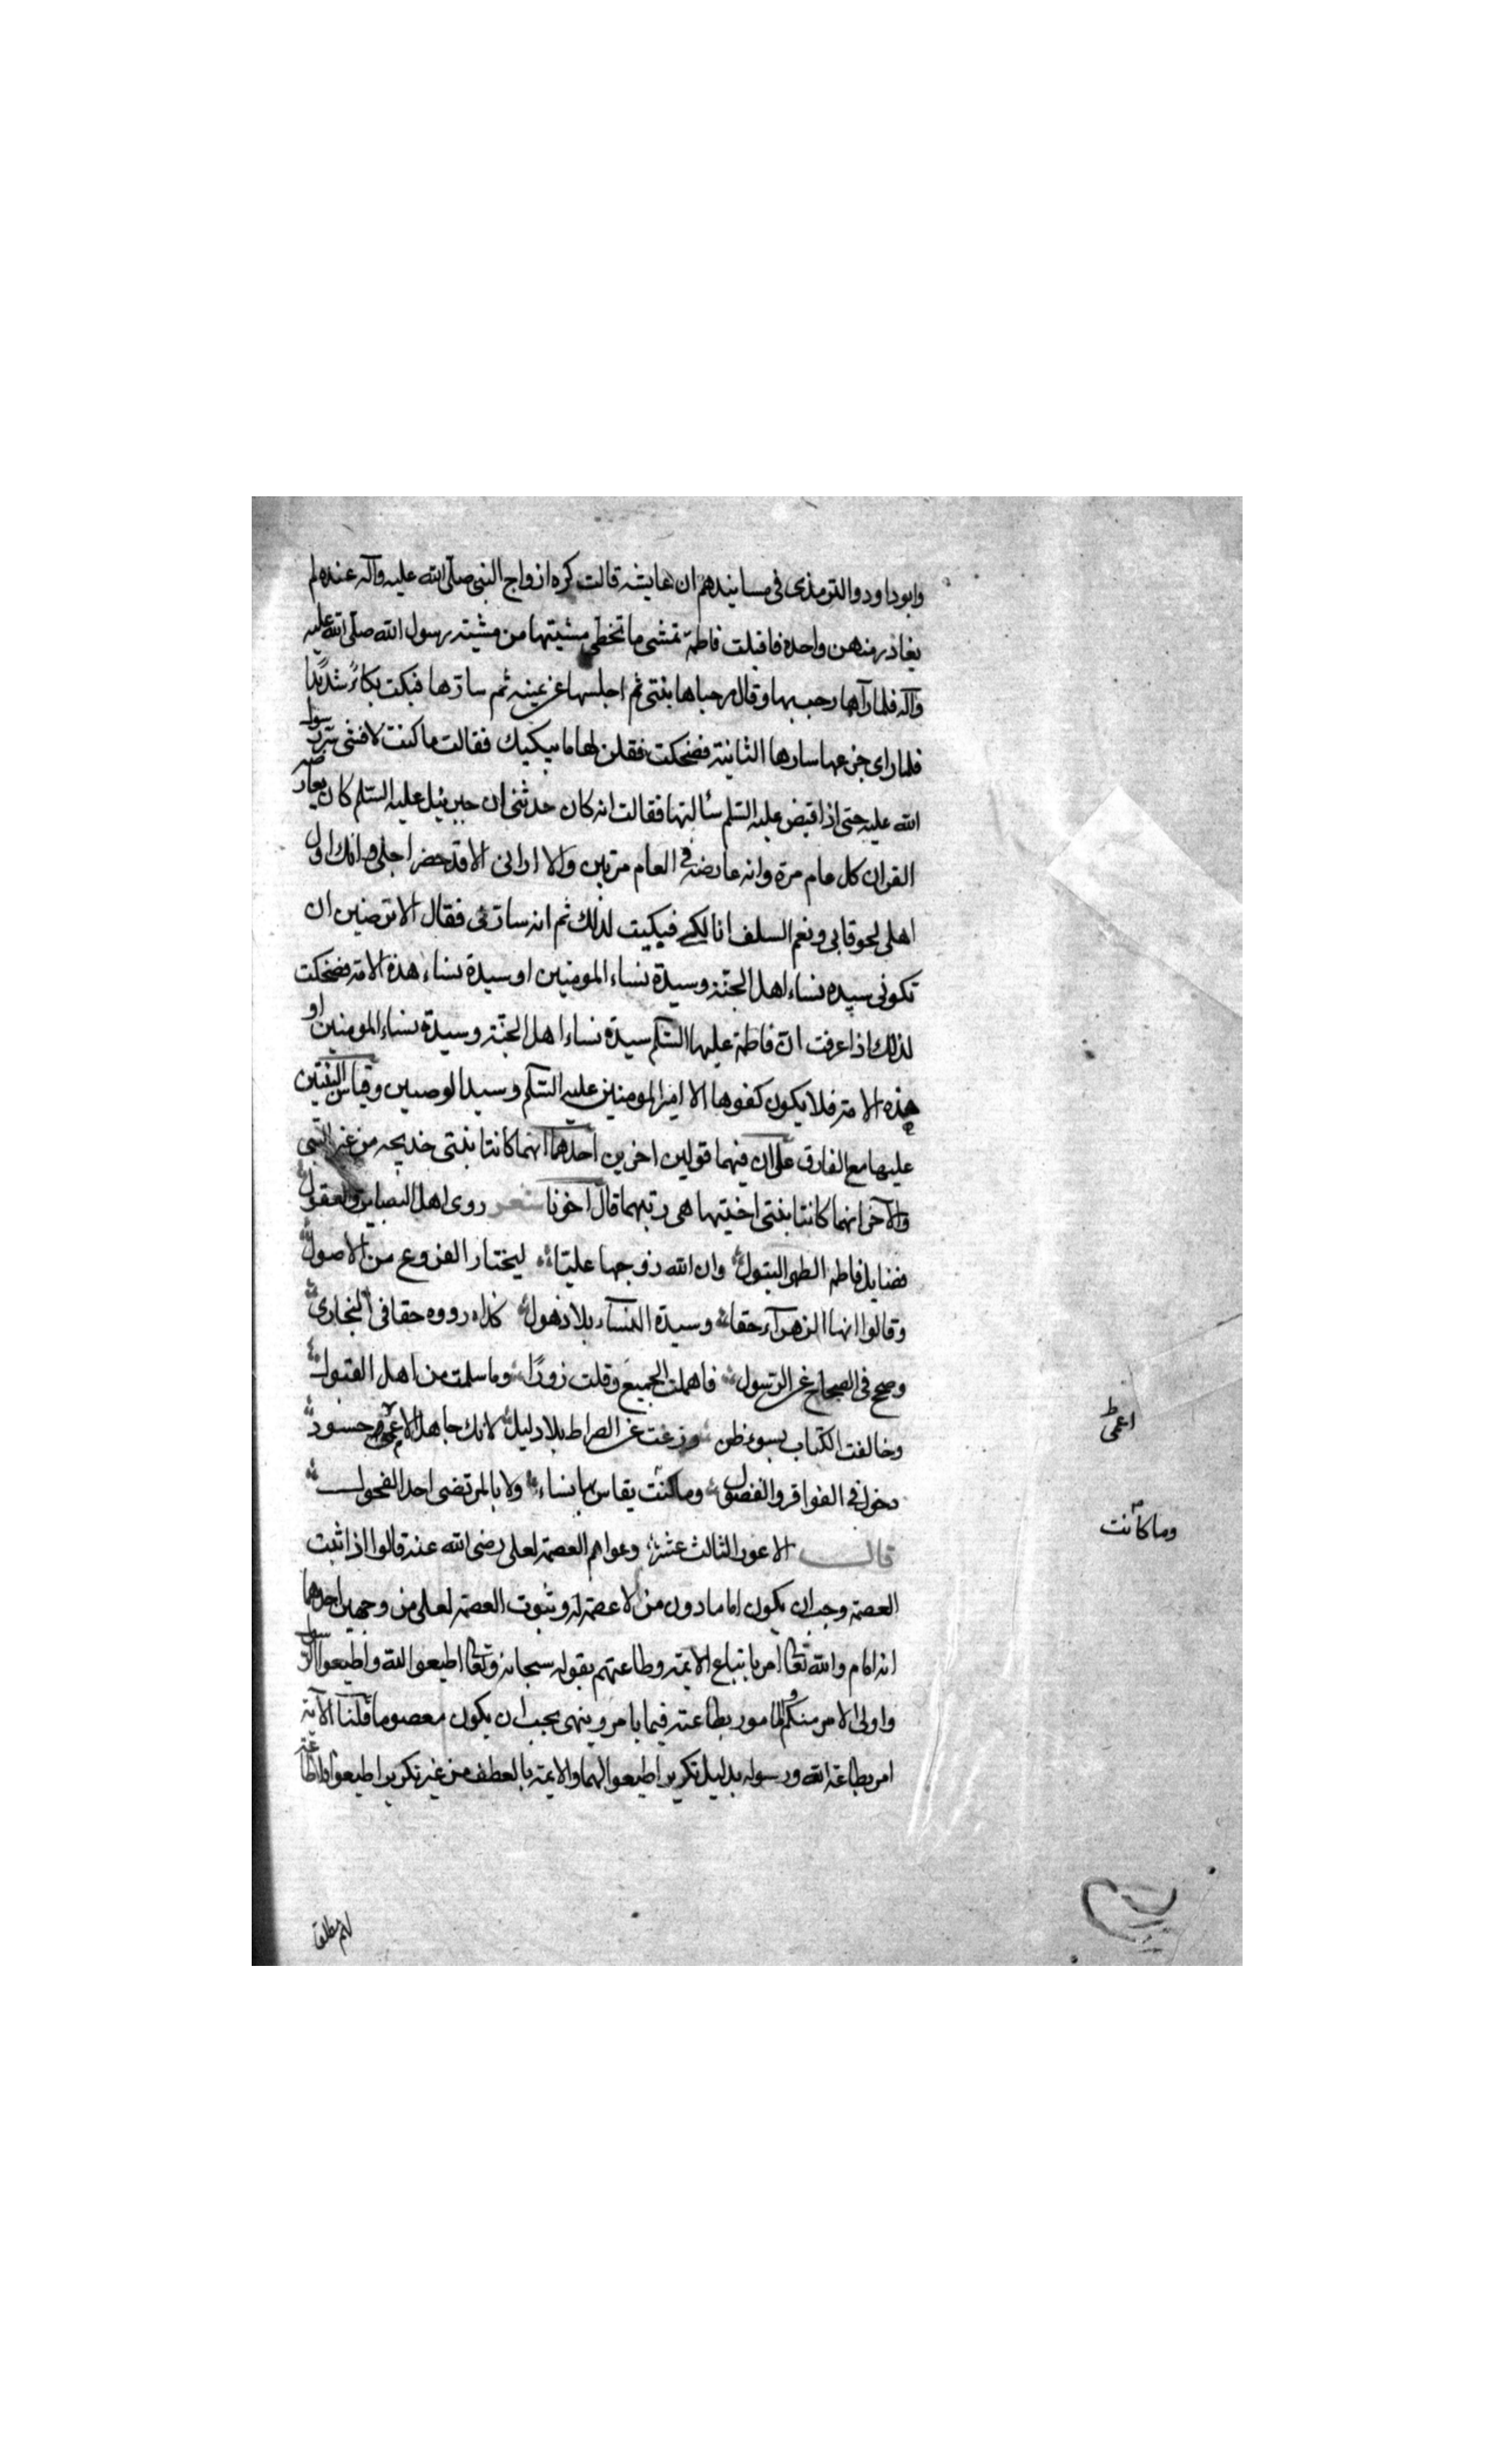 وابوداود والترمذى فى مسانيدهم ان عايشه قالت كره ازواج النبى صلّى الله عليه وآله عنده لم
يغاذر منهن واحدة فاقبلت فاطمة تمشى ما تخطى مشيتها من مشية رسول الله صلّى الله عليه
وآله فلما رآها رحب بها وقال مرحبا ها بنتى ثم اجلسها عن يمينه ثم سارّها فبكت بكاءً شديدًا
فلما راى جزعها سارها الثانية فضحكت فقلن لها ما يبكيك فقالت ما كنت لافشى سرّ رسول
الله عليه حتى اذا قبض عليه السّلم سألتها فقالت انه كان حدثنى ان جبرئيل عليه السّلم كان يعارضه
القران كل عام مرة وانه عارضه فى العام مرتين ولا ارانى الا قد حضر اجلى وانك اول
اهلى لحوقا بى ونعم السلف انا لك فبكيت لذلك ثم انه سارّنى فقال الا ترضين ان
تكونى سيده نساء اهل الجنّة وسيدة نساء المومنين او سيدة نساء هذه الامة فضحكت
لذلك اذا عرفت انّ فاطمة عليها السّلم سيدة نساء اهل الجنّة وسيدة نساء المومنين او
هذه الامة فلا يكون كفوها الا امير المومنين عليه السّلم وسيد الوصيين وقياس البنتين
عليها مع الفارق على ان فيهما قولين اخرين احدهما انهما كانتا بنتى خديجه من غير النبى
والآخر انهما كانتا بنتى اختها هى ربتهما قال اخونا شعر روى اهل البصاير والعقول
فضايل فاطم الطهر البتول وان الله زوجها عليّا ليختار الفروع من الاصول
وقالوا انها الزهرآء حقا وسيدة النسآء بلا ذهول كذا رووه حقا فى البخارى
وصح فى الصحاح عن الرسول فاهملت الجميع وقلت زورًا وما سلمت من اهل القبول
وخالفت الكتاب بسوء ظن وزغت عن الصراط بلا دليل لانك جاهل اعمى حسود
دخول فى الفواقر والفضول وما كنت يقاس بها نساء ولا بالمرتضى احد الفحول
قال الاعور الثالث عشر دعواهم العصمة لعلى رضى الله عنه قالوا اذا ثبت
العصمة وجب ان يكون اماما دون من لا عصمة له وثبوت العصمة لعلى من وجهين احدهما
انه امام والله تعالى امر باتباع الايمة وطاعتهم بقوله سبحانه وتعالى اطيعوا الله واطيعوا الرسول
واولى الامر منكم والمامور بطاعته فيما يامر وينهى يجب ان يكون معصوما قلنا الآية
امر بطاعة الله ورسوله بدليل تكرير اطيعوا لهما والايمة بالعطف من غير تكرير اطيعوا
اعمى
وما كانت
لهم مطلق